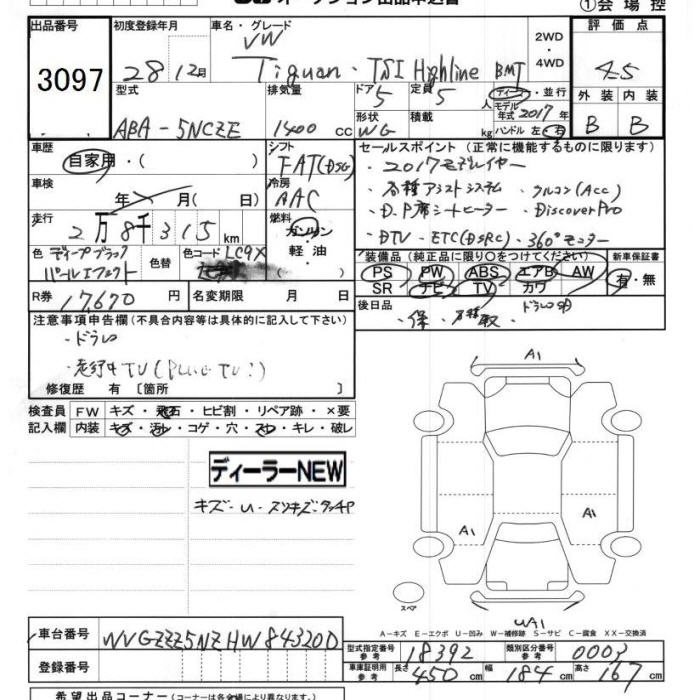 オークション出品申込書
①会場控
出品番号 初度登録年月 車名・グレード 2WD ・ 4WD 評価点
3097 28 12月 VW Tiguan・TSI Highline BMT 4.5
型式 排気量 ドア 5 定員 5人 ディーラー・並行 外装 内装
ABA-5NCZE 1400 cc 形状 WG 積載 kg モデル年式 2017年 ハンドル 左・右 B B
車歴 シフト セールスポイント (正常に機能するものに限ります)
自家用・( ) FAT(DSG) ・2017モデルイヤー
車検 年 月( 日) 冷房 AAC ・各種アシストシステム ・クルコン(Acc)
走行 2万8千315km 燃料 ガソリン・軽油 ・D.P席シートヒーター ・DiscoverPro
・DTV ・ETC(DSRC) ・360°モニター
色 ディープブラックパールエフェクト 色替 色コード LC9X
装備品 (純正品に限り○をつけてください) 新車保証書
PS PW ABS エアB AW 有・無
SR ナビ TV カワ
R券 17,670円 名変期限 月 日 後日品
・保、 取、
注意事項申告欄(不具合内容等は具体的に記入して下さい)
・ドラレコ
・走行中TV
修復歴 有 〔箇所 〕
検査員 FW キズ・飛石・ヒビ割・リペア跡・×要
記入欄 内装 キズ・汚レ・コゲ・穴・スレ・キレ・破レ
A1
ディーラーNEW
キズ・U・スリキズ・タッチP
A1 A1
スペア
UA1
A-キズ E-エクボ U-凹み W-補修跡 S-サビ C-腐食 XX-交換済
車台番号 WVGZZZ5NZHW843200
型式指定番号 参考 18392 類別区分番号 参考 0003
登録番号 車庫証明用 参考 長さ 450cm 幅 184cm 高さ 167cm
希望出品コーナー(コーナーは各会場により異なります)